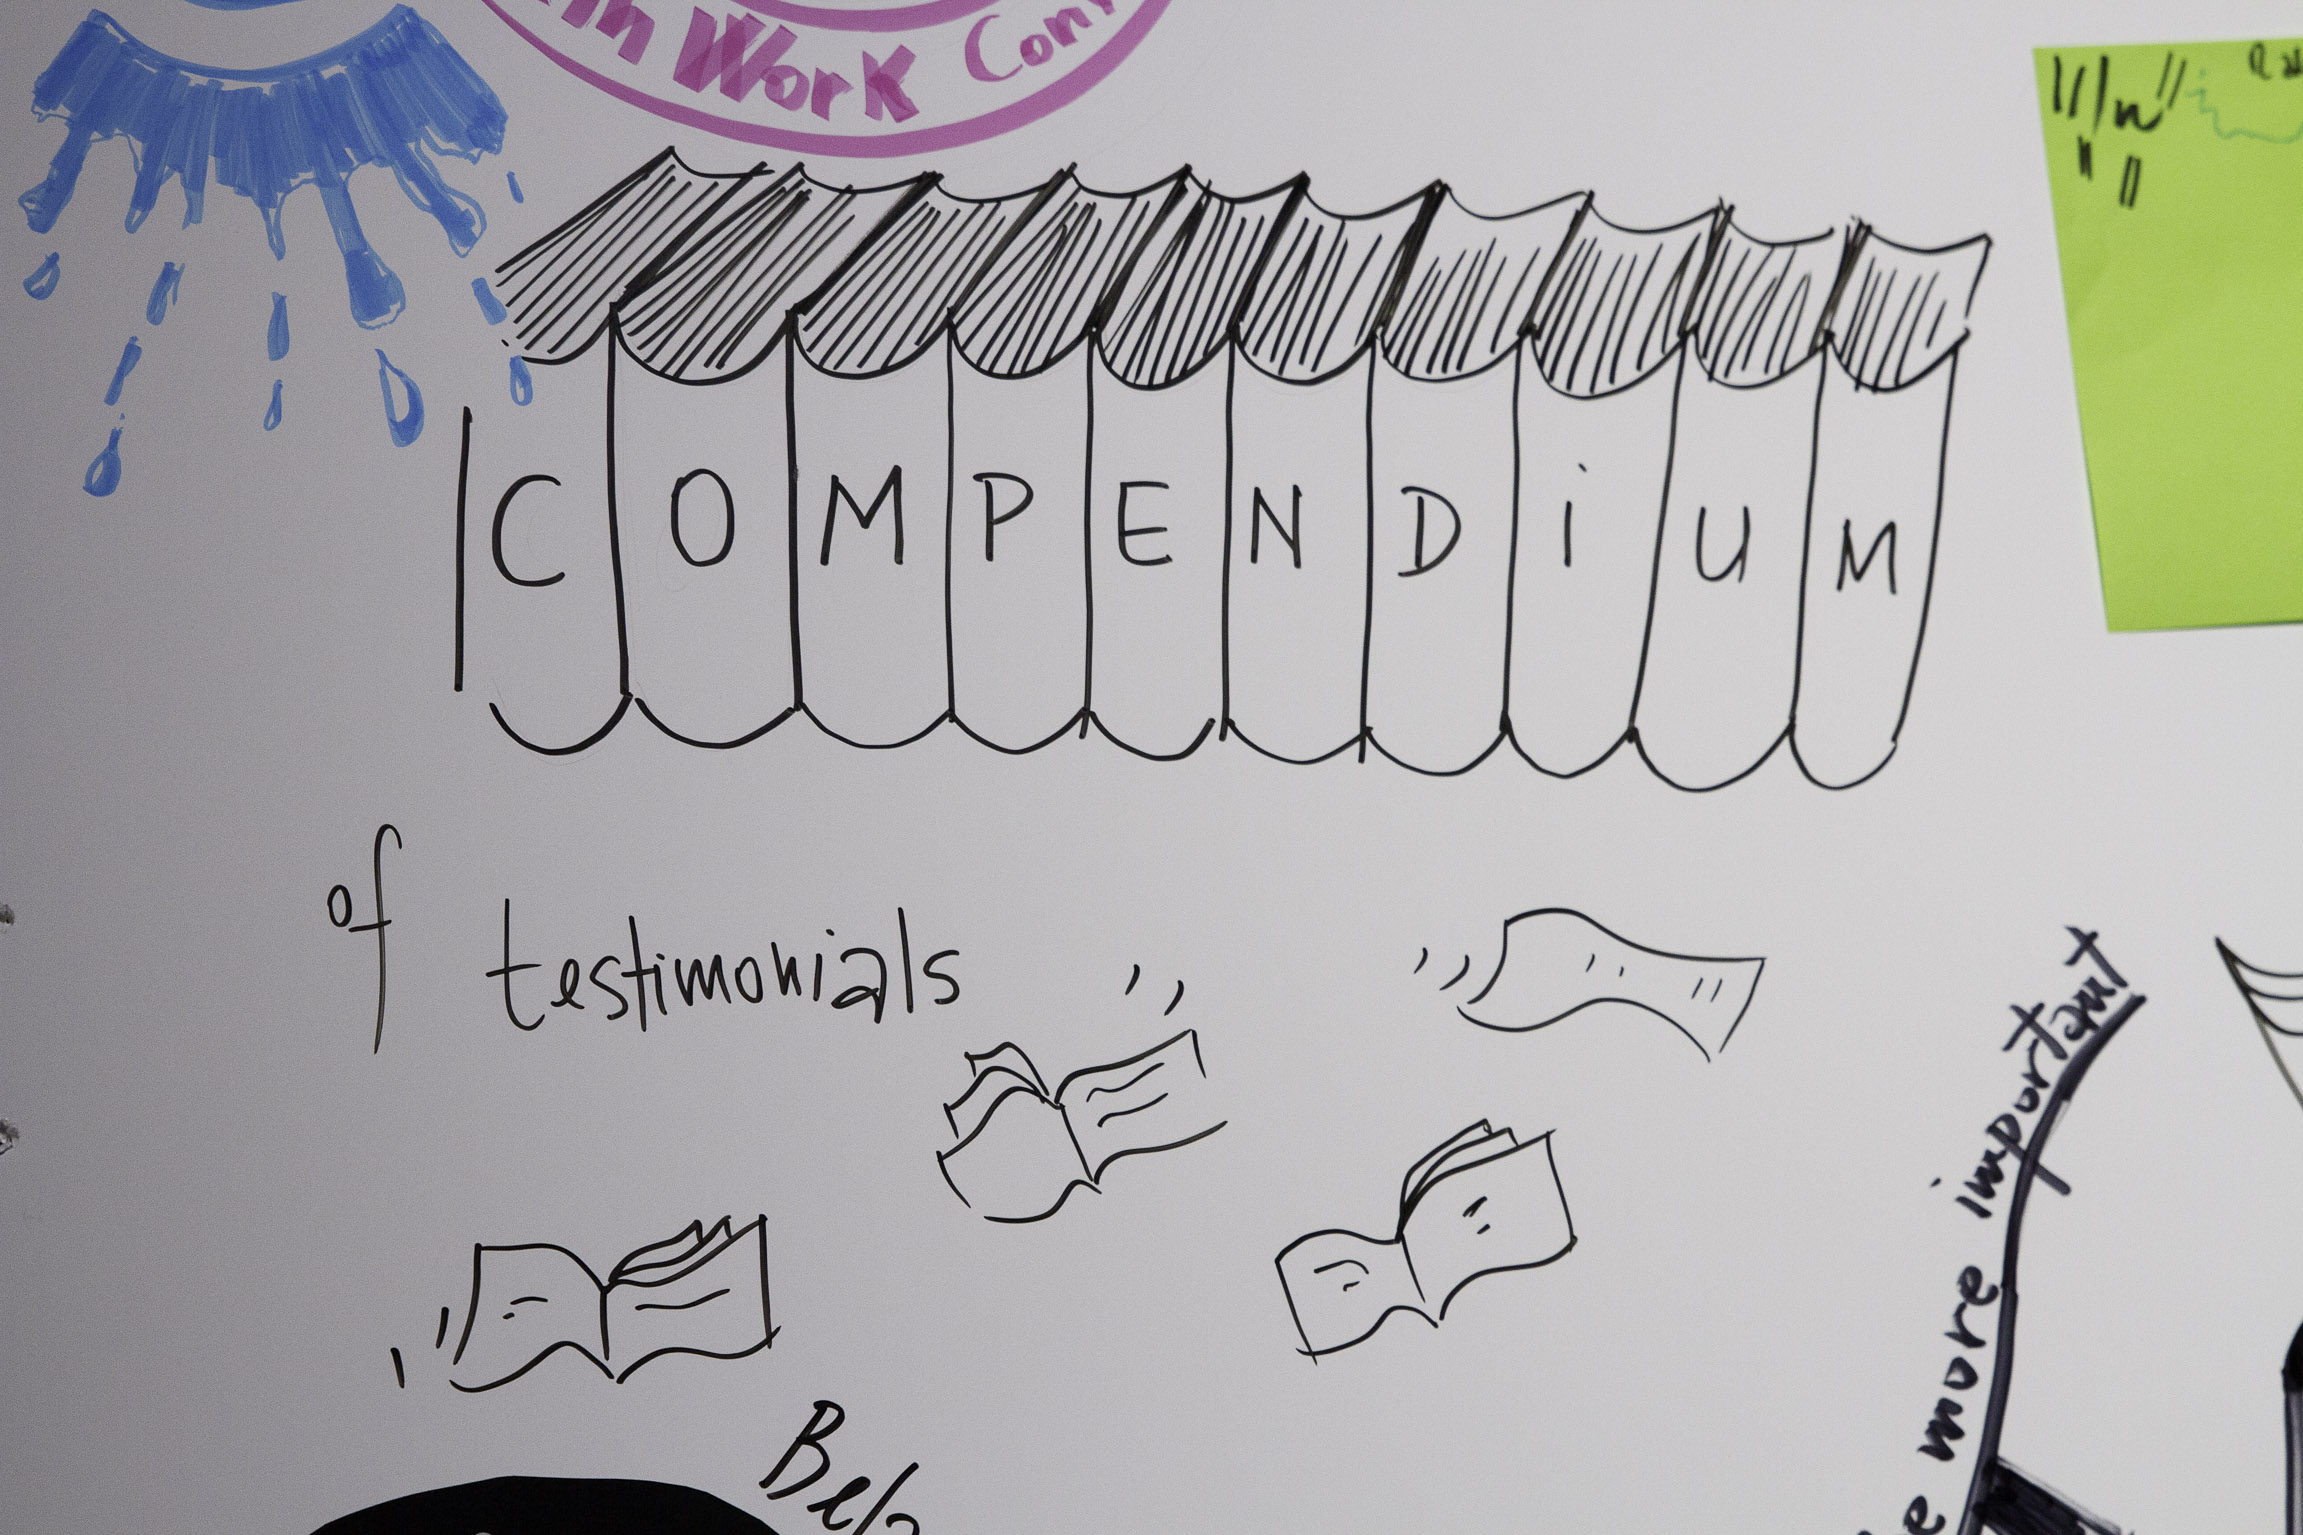 Work
COMPENDiUM
of testimonials
more important